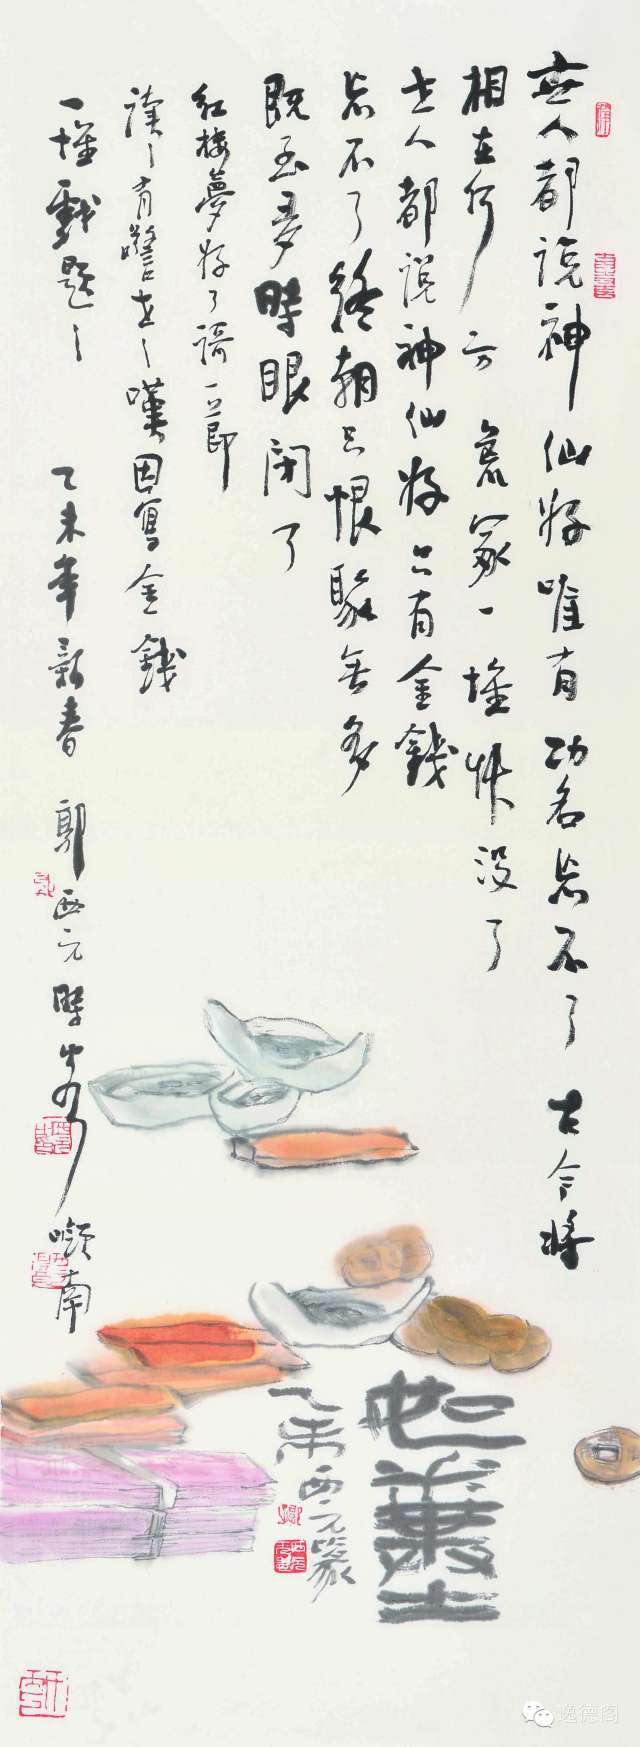 世人都説神仙好唯有功名忘不了古今將
相在何方荒冢一堆草没了
世人都説神仙好只有金錢
忘不了終朝只恨聚無多
既至多時眼閉了
紅樓夢好了
讀之有警世之嘆因寫金錢
一堆戲題之 乙未年新春 郭西元時客嶺南
乙未西元篆
逸德阁